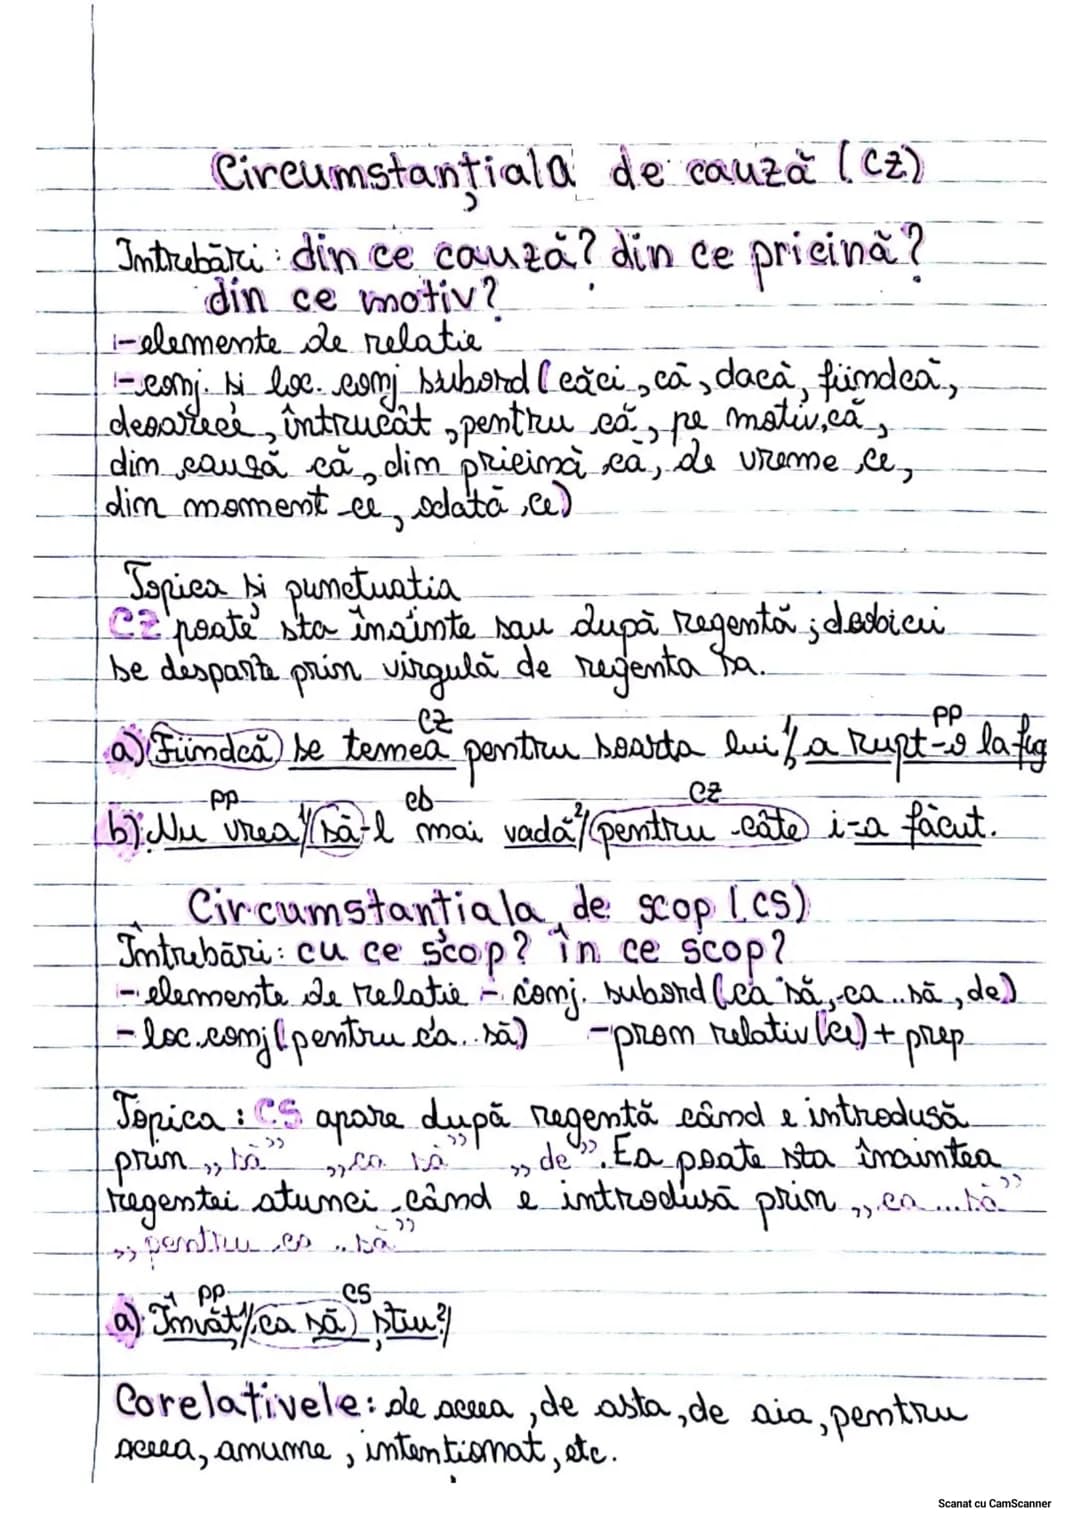 Circumstanțiala de cauză (CZ)
Întrebări: din ce cauză? din ce pricină?
din ce motiv?
-elemente de relatie
-conj. și loc. conj subord (căci, că, dacă, fiindcă,
deoarece, întrucât, pentru că, pe motiv că,
din cauză că, din pricină că, de vreme ce,
din moment ce, odată ce)
Topica și punctuatia
CZ poate sta înainte sau după regentă; deobicei
se desparte prin virgulă de regenta sa.
CZ PP
a) Fiindcă se temea pentru soarta lui,1/ a rupt-o la fug
PP cb CZ
b) Nu vrea1/ să-l mai vadă2/ pentru câte i-a făcut.
Circumstanțiala de scop (CS)
Întrebări: cu ce scop? în ce scop?
-elemente de relatie - conj. subord (ca să, ca..să, de)
-loc.conj (pentru ca..să) -pron relativ (ce) + prep
Topica: CS apare după regentă când e introdusă
prin „să” „ca să” „de”. Ea poate sta înaintea
regentei atunci când e introdusă prin „ca...să”
„pentru ca..să”
PP CS
a) Învăț1/ ca să știu2/
Corelativele: de aceea, de asta, de aia, pentru
aceea, anume, intenționat, etc.
Scanat cu CamScanner